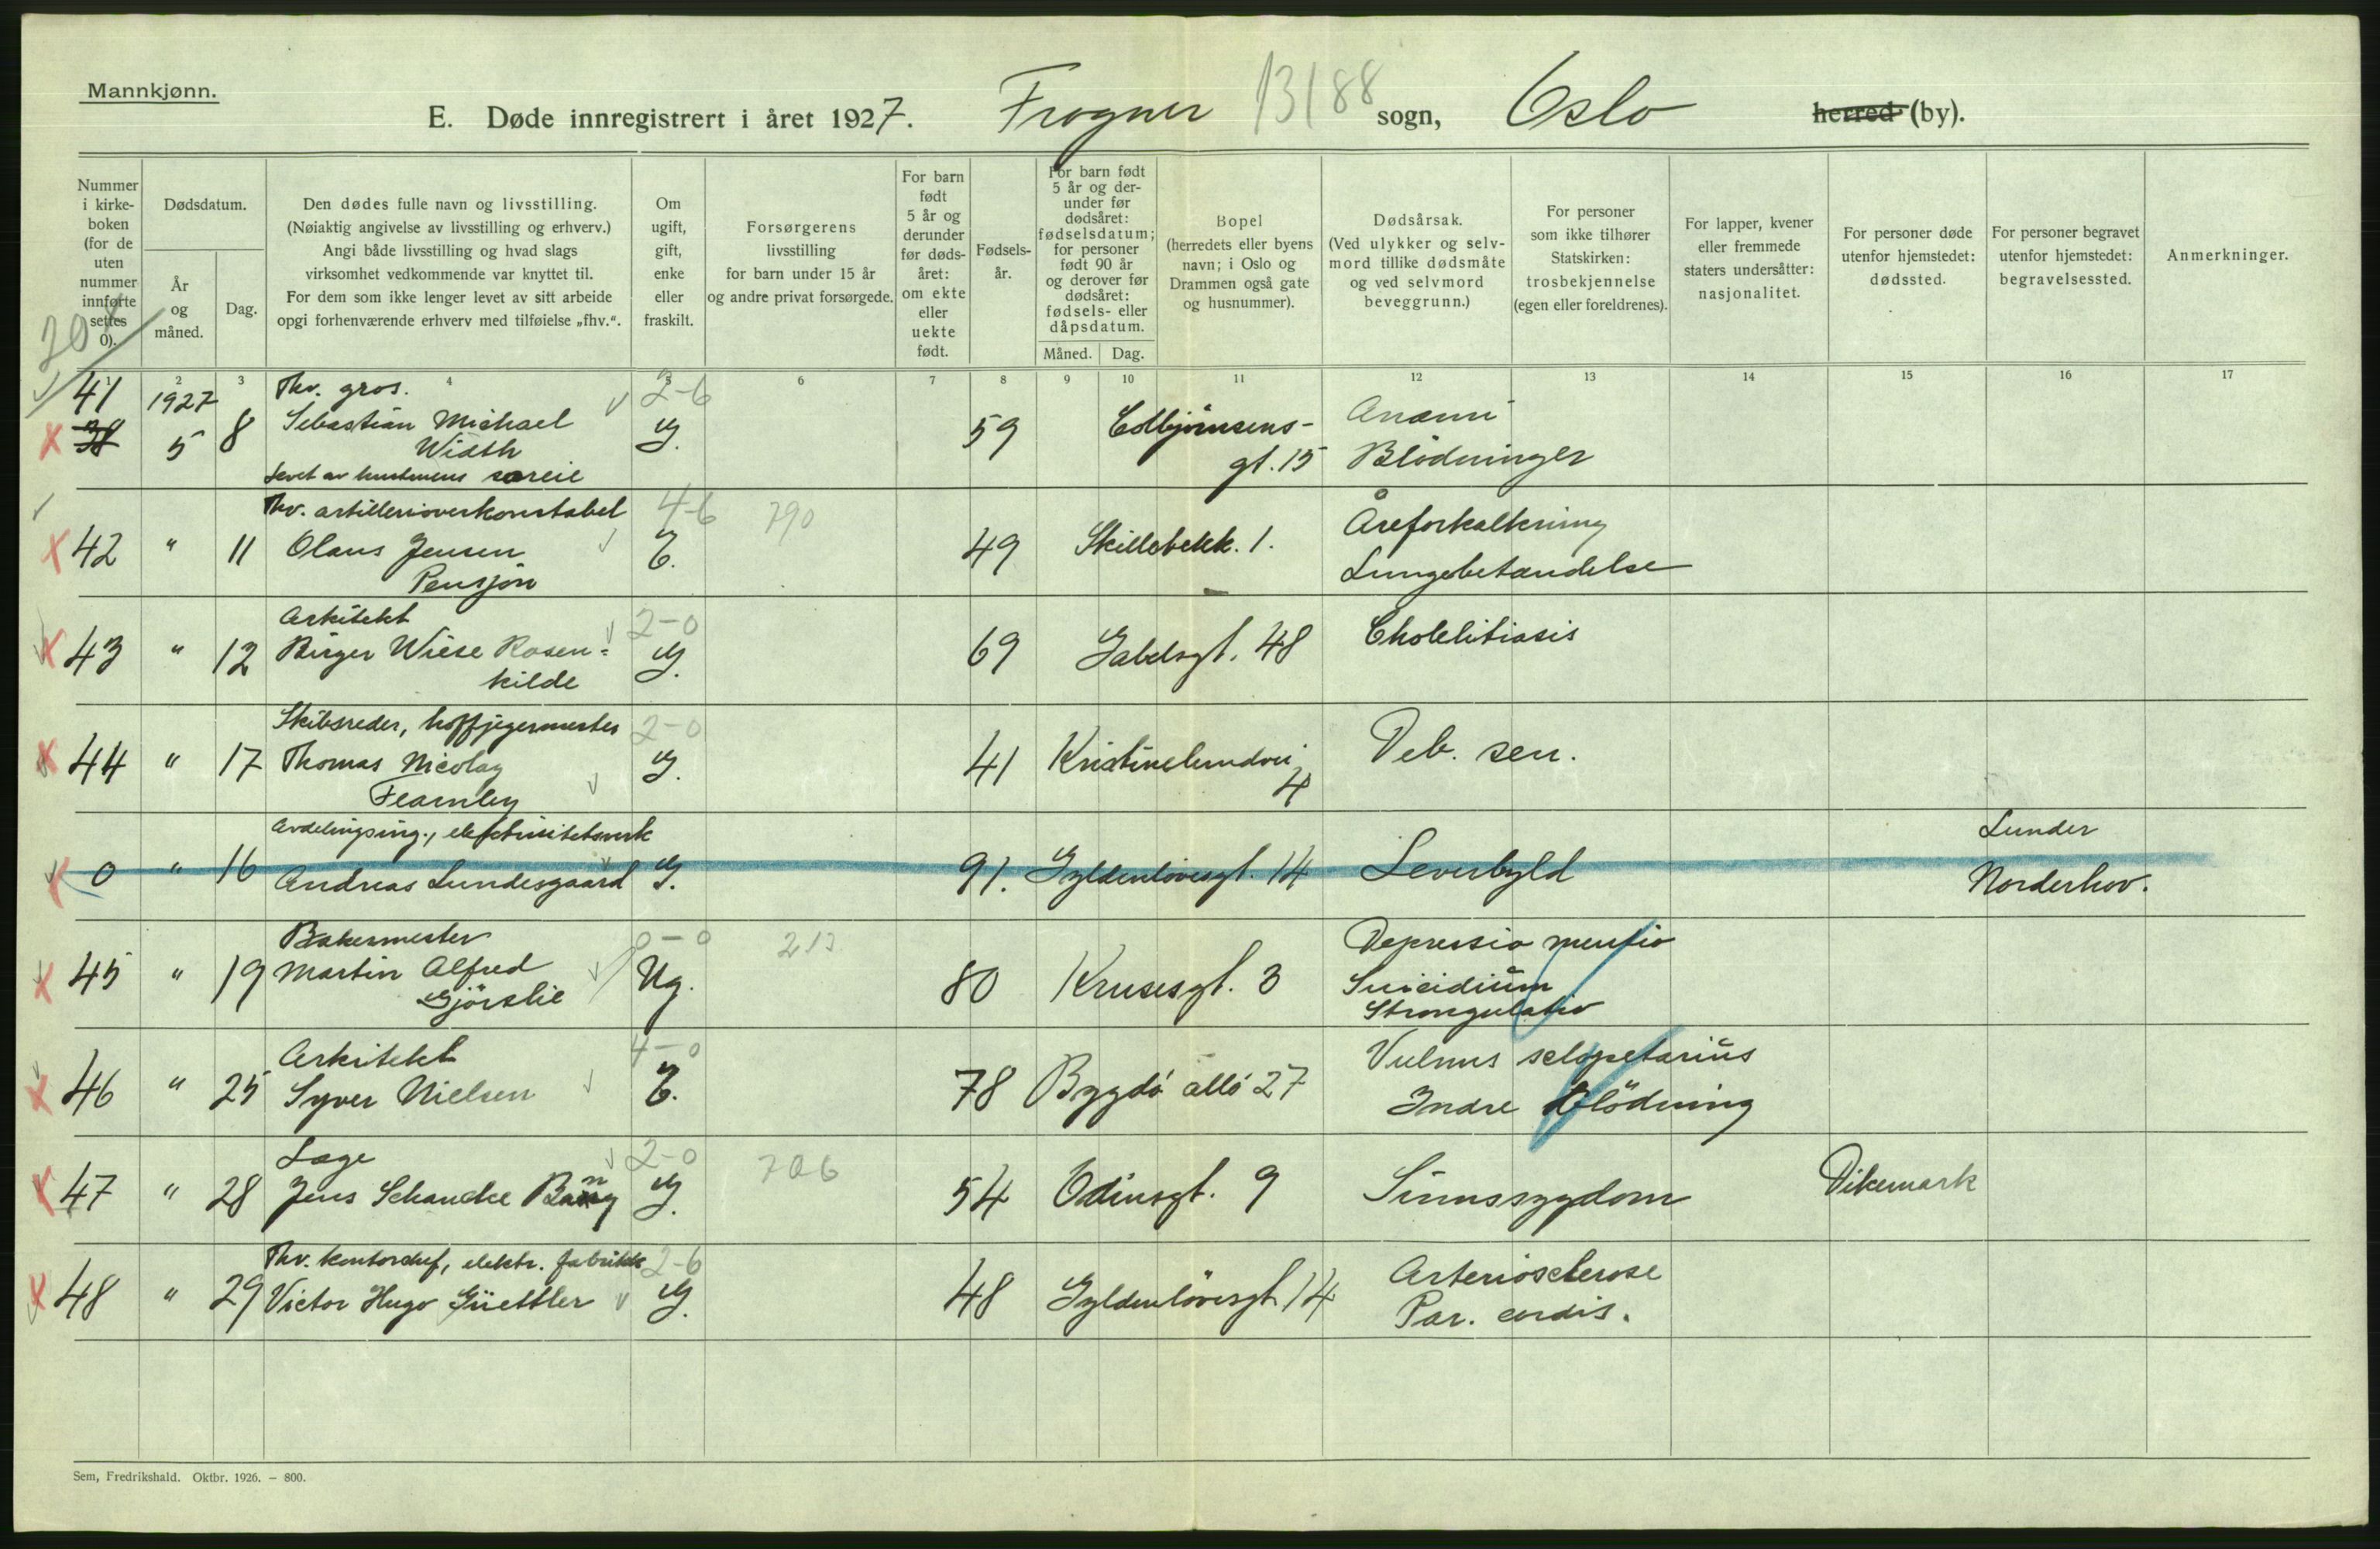 Mannkjønn.
E. Døde innregistrert i året 1927. Frogner 13188 sogn, Oslo herred (by).
Nummer i kirke-boken (for de uten nummer innførte settes 0).
Dødsdatum.
År og måned.
Dag.
Den dødes fulle navn og livsstilling.
(Nøiaktig angivelse av livsstilling og erhverv.)
Angi både livsstilling og hvad slags
virksomhet vedkommende var knyttet til.
For dem som ikke lenger levet av sitt arbeide
opgi forhenværende erhverv med tilføielse „fhv.“.
Om ugift, gift, enke eller fraskilt.
Forsørgerens
livsstilling
for barn under 15 år
og andre privat forsørgede.
For barn født 5 år og derunder før døds-året: om ekte eller uekte født.
Fødsels-år.
For barn født 5 år og der-under før dødsåret: fødselsdatum; for personer født 90 år og derover før dødsåret: fødsels- eller dåpsdatum.
Måned. Dag.
Bopel
(herredets eller byens
navn; i Oslo og
Drammen også gate
og husnummer).
Dødsårsak.
(Ved ulykker og selv-
mord tillike dødsmåte
og ved selvmord
beveggrunn.)
For personer
som ikke tilhører
Statskirken:
trosbekjennelse
(egen eller foreldrenes).
For lapper, kvener
eller fremmede
staters undersåtter:
nasjonalitet.
For personer døde
utenfor hjemstedet:
dødssted.
For personer begravet
utenfor hjemstedet:
begravelsessted.
Anmerkninger.
1 2 3 4 5 6 7 8 9 10 11 12 13 14 15 16 17
41 1927 Fhv. gros. 2-6
38 5 8 Sebastian Michael G. 59 Colbjørnsens- Anæmi
Width gt. 15 Blödninger
Levet av hustruens særeie
Fhv. artillerioverkonstabel 4-6 790
42 " 11 Olaus Jensen E. 49 Skillebekk. 1. Åreforkalkning
Pensjon Lungebetændelse
Arkitekt 2-0
43 " 12 Birger Wiese Rosen= G. 69 Gabelsgt. 48 Cholelitiasis
kilde
Skibsreder, hoffjegermester 2-0
44 " 17 Thomas Nicolay G. 41 Kristinelundvei Deb. sen.
Fearnley 4
Avdelingsing., elektricitetsverk Lunder
0 " 16 Andreas Lundesgaard G. 91. Gyldenløvesgt. 14 Leverbyld Norderhov.
Bakermester 0-0 213 Depressio mentis
45 " 19 Martin Alfred Ug. 80 Krusesgt. 3 Suicidium
Gjörslie Strongulatio
Arkitekt 4-0 Vulnus sclopetarius
46 " 25 Syver Nielsen E. 78 Bygdö allé 27 Indre Blödning
Læge 2-0 706
47 " 28 Jens Schancke Bang G. 54 Odinsgt. 9 Sinnssygdom Dikemark
Fhv. kontorchef, elektr. fabrikk 2-6 Arteriosclerose
48 " 29 Victor Hugo Güettler G. 48 Gyldenlövesgt 14 Par. cordis.
Sem, Fredrikshald. Oktbr. 1926. – 800.